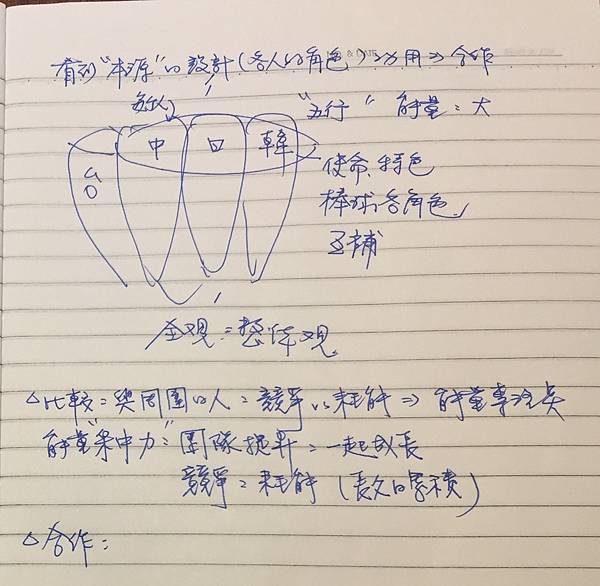 看到"本源"的設計(各人的角色)功用⇒合作
"五行" 能量:大
中 日 韓
使命、特色
棒球:各角色
互補
全观:整体观
△比較:與周圍的人:競爭以耗能⇒能量專注矣
能量"集中力":團隊提升:一起成長
競爭:耗能(長久日累積)
△合作: